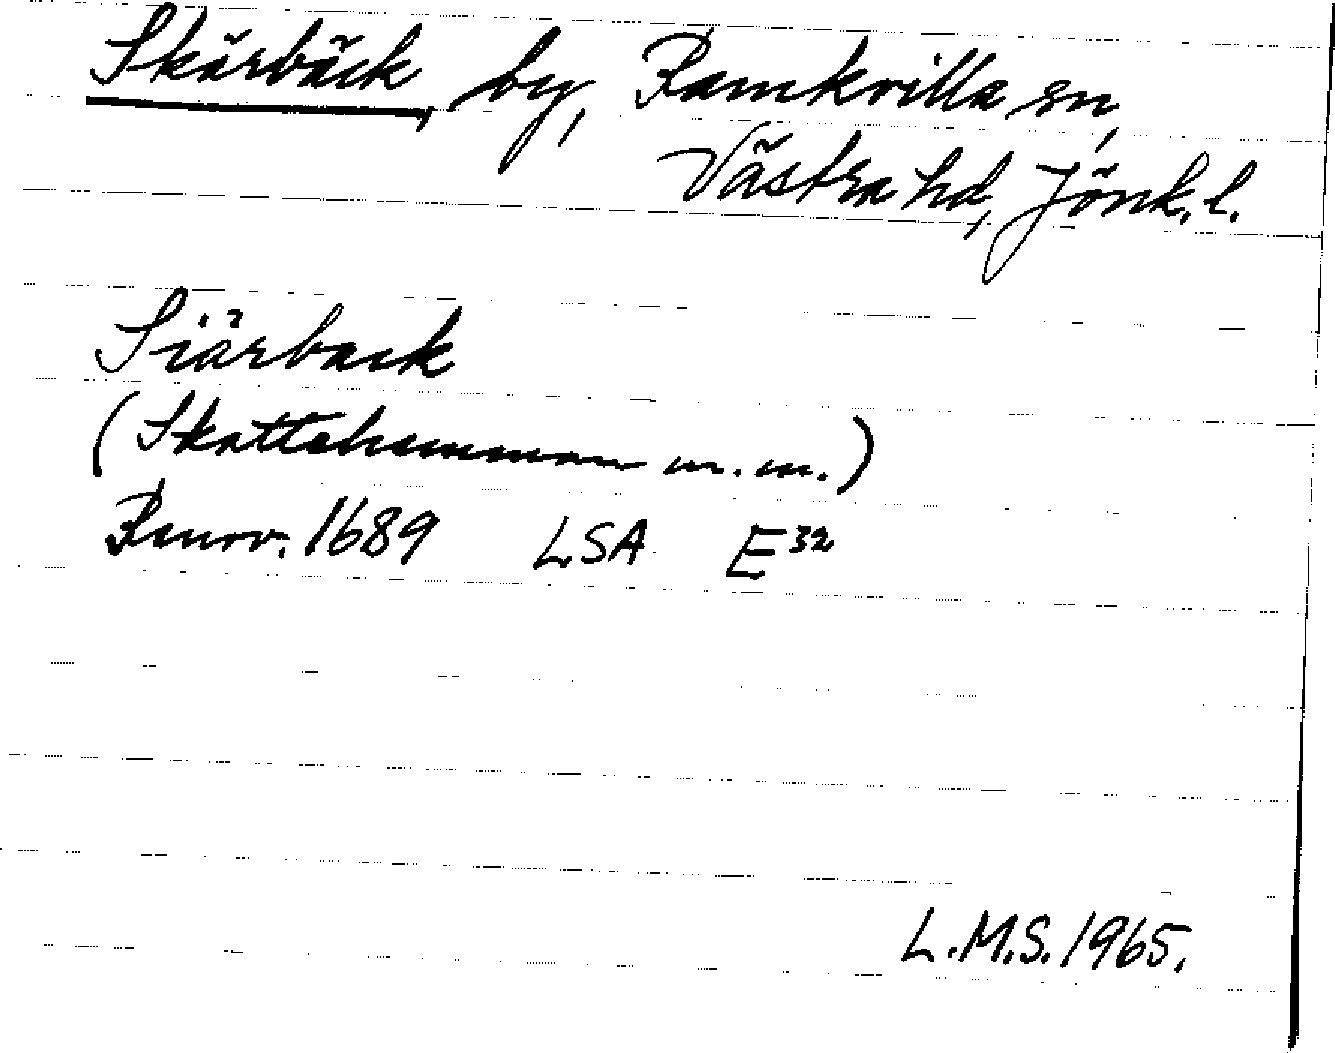 Skärbäck, by, Ramkvilla sn,
Västra hd, Jönk. l.
Siärback
(Skattehemman m.m.)
Renov. 1689 LSA E32
L.M.S. 1965.